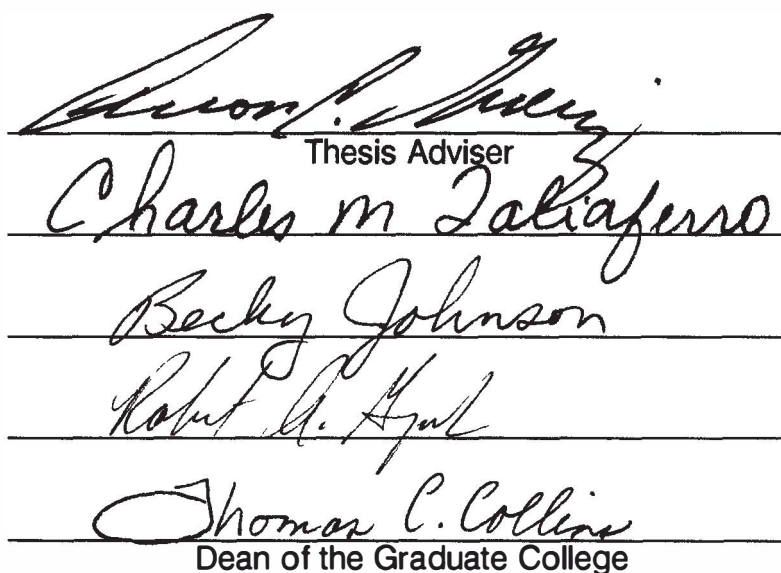 Thesis Adviser
Charles M Taliaferro
Becky Johnson
Robert A.
Thomas C. Collins
Dean of the Graduate College